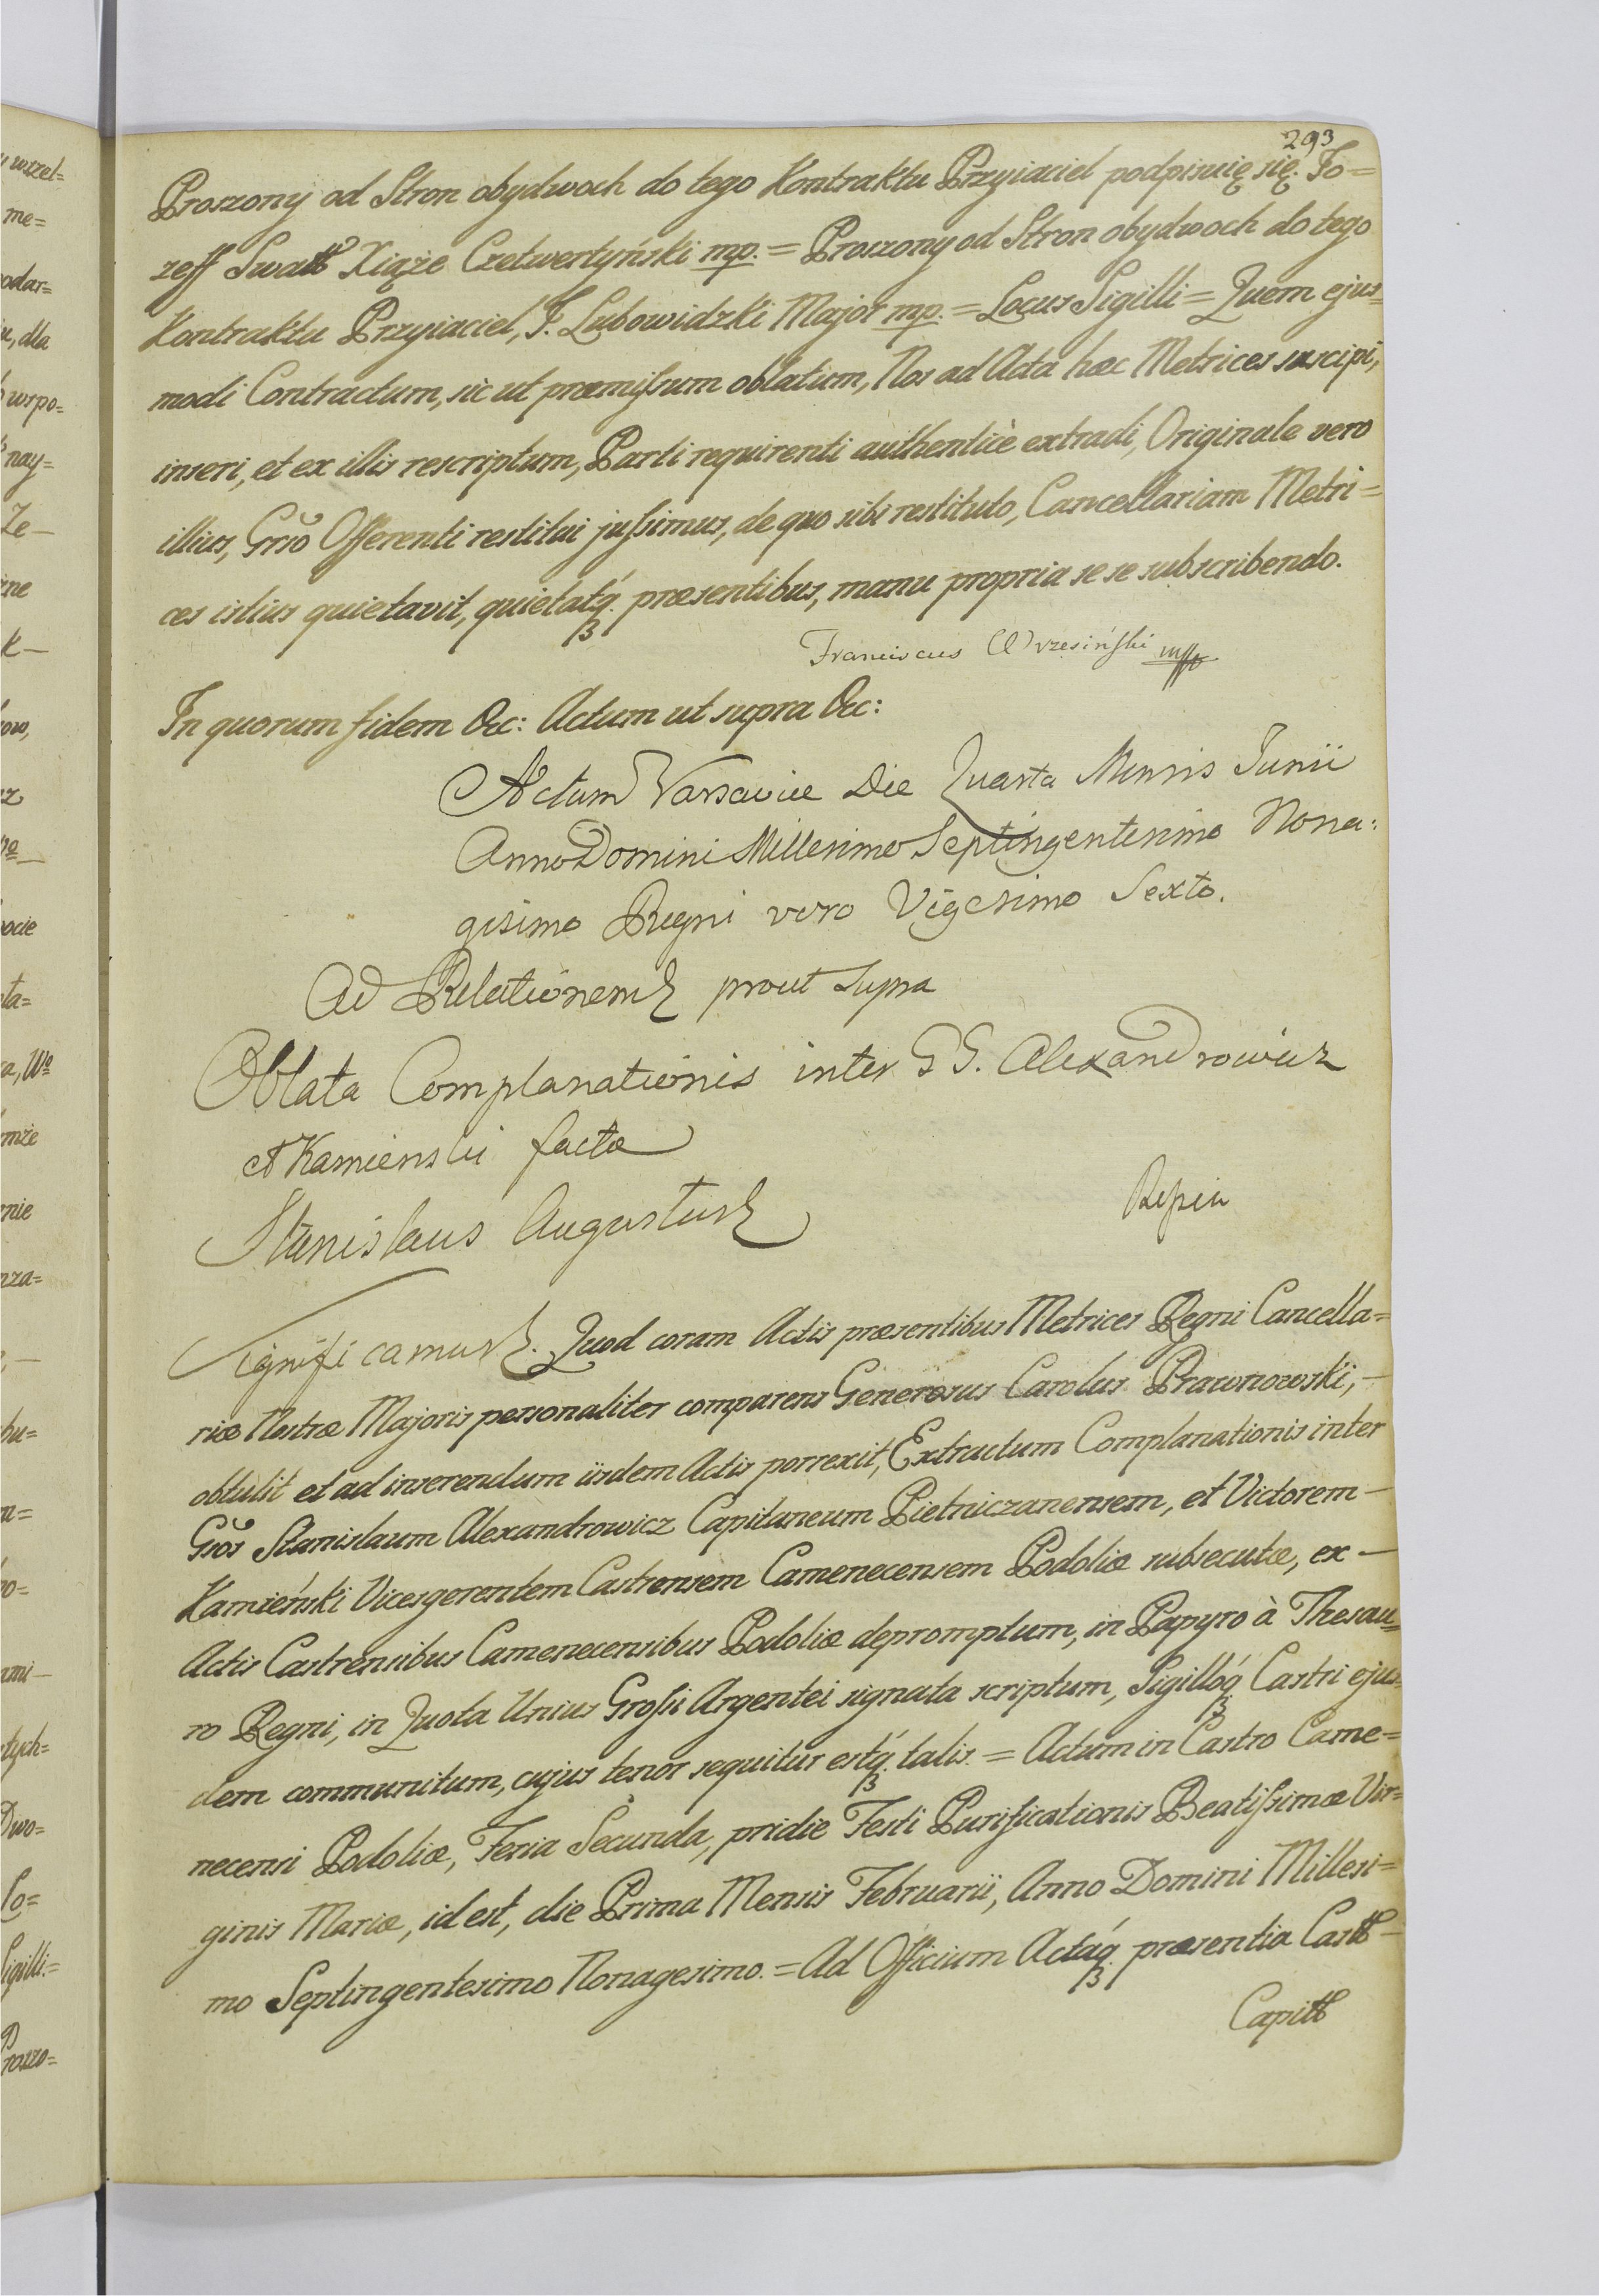 293
Proszony od Stron obydwoch do tego Kontraktu Przyiaciel podpisuię się. Jo=
zeff Swatt Xiąże Czetwertyński mp. = Proszony od Stron obydwoch do tego
Kontraktu Przyiaciel, J. Lubowidzki Major mp. = Locus Sigilli = Quem ejus=
modi Contractum, sic ut præmissum oblatum, Nos ad Acta hæc Metrices suscipi,
inseri, et ex illis rescriptum, Parti requirenti authenticè extradi, Originale vero
illius, Gnso Offerenti restitui jussimus, de quo sibi restituto, Cancellariam Metri=
ces istius quietavit, quietatq. præsentibus, manu propria sese subscribendo.
Franciscus Wrzesiński mp
In quorum fidem &c: Actum ut supra &c:
Actum Varsaviæ Die Quarta Mensis Junii
Anno Domini Millesimo Septingentesimo Nona:
gesimo Regni vero Vigesimo Sexto.
Ad Relationem prout supra
Oblata Complanationis inter GG. Alexandrowicz
et Kamienski factæ
Stanislaus Augustus
Significamus. Quod coram Actis præsentibus Metrices Regni Cancella=
riæ Nostræ Majoris personaliter comparens Generosus Carolus Prawnowski, —
obtulit et ad inserendum iisdem Actis porrexit, Extractum Complanationis inter
Gsos Stanislaum Alexandrowicz Capitaneum Pietniczanensem, et Victorem —
Kamieński Vicesgerentem Castrensem Camenecensem Podoliæ subsecutæ, ex —
Actis Castrensibus Camenecensibus Podoliæ depromptum, in Papyro à Thesau=
ro Regni, in Quota Unius Grossi Argentei signata scriptum, Sigilloq. Castri ejus=
dem communitum, cujus tenor sequitur estq. talis. = Actum in Castro Came=
necensi Podoliæ, Feria Secunda, pridie Festi Purificationis Beatissimæ Vir=
ginis Mariæ, id est, die Prima Mensis Februarii, Anno Domini Millesi=
mo Septingentesimo Nonagesimo. = Ad Officium Actaq. præsentia Castt —
Capitt